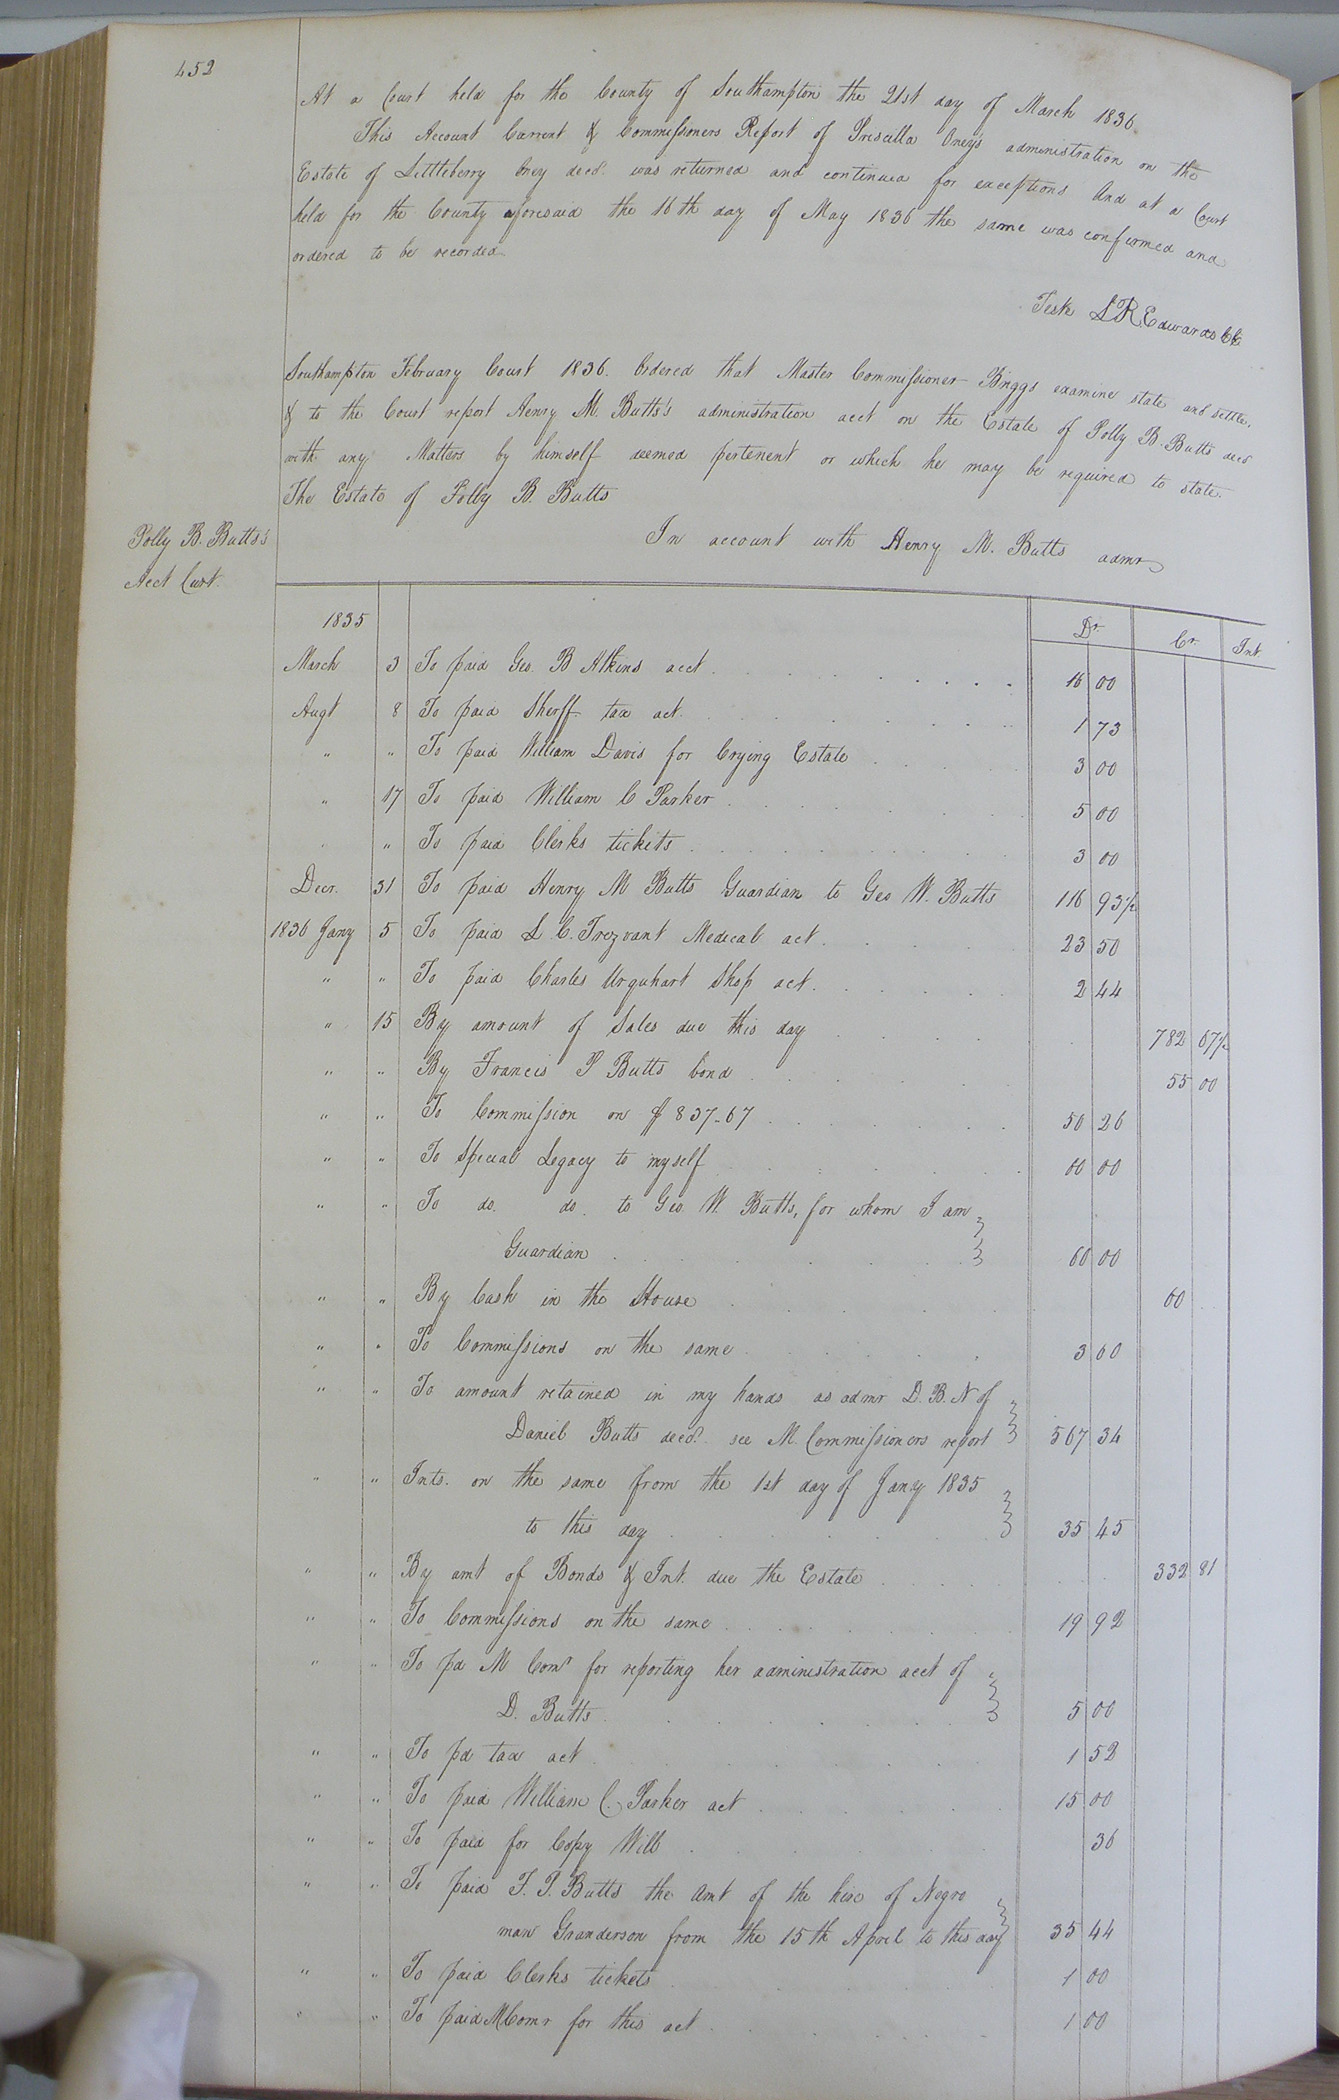 452
At a Court held for the County of Southampton the 21st day of March 1836
This Account Current & Commissioners Report of Priscilla Oney's administration on the
Estate of Littleberry Oney decd. was returned and continued for exceptions And at a Court
held for the County aforesaid the 16th day of May 1836 the same was confirmed and
ordered to be recorded
Teste L R. Edwards CC
Southampton February Court 1836. Ordered that Master Commissioner Briggs examine state and settle,
& to the Court report Henry M. Butts's administration acct on the Estate of Polly B. Butts decd
with any Matters by himself deemed pertenent or which he may be required to state.
The Estate of Polly B. Butts
Polly B. Butts's
Acct Curt.
In account with Henry M. Butts admr
1835 Dr. Cr. Int
March 3 To paid Geo. B Atkins acct 16 00
Augt 8 To paid Sherff. tax act. 1 73
" " To paid William Davis for Crying Estate 3 00
" 17 To paid William C Parker 5 00
" To paid Clerks tickets 3 00
Decr. 31 To paid Henry M Butts Guardian to Geo W. Butts 116 93½
1836 Jany 5 To paid L. C. Trezvant Medical act. 23 50
" " To paid Charles Urquhart Shop act. 2 44
" 15 By amount of Sales due this day 782 67½
" " By Francis P Butts bond 55 00
" " To Commission on $837-67 50 26
" " To Special Legacy to myself 60 00
" " To do. do. to Geo. W. Butts, for whom I am
Guardian 60 00
" " By Cash in the House 60
" " To Commissions on the same 3 60
" " To amount retained in my hands as admr D. B. N of
Daniel Butts decd. see M. Commissioners report 567 34
" " Ints. on the same from the 1st day of Jany 1835
to this day 35 45
" " By amt of Bonds & Int. due the Estate 332 81
" " To Commissions on the same 19 92
" " To pd M Comr for reporting her administration acct of
D. Butts 5 00
" " To pd tax act 1 52
" " To paid William C. Parker act 15 00
" " To paid for Copy Will 36
" " To paid F. P. Butts the Amt of the hire of Negro
man Granderson from the 15th April to this day 35 44
" " To paid Clerks tickets 1 00
" " To paid M Comr for this act 1 00